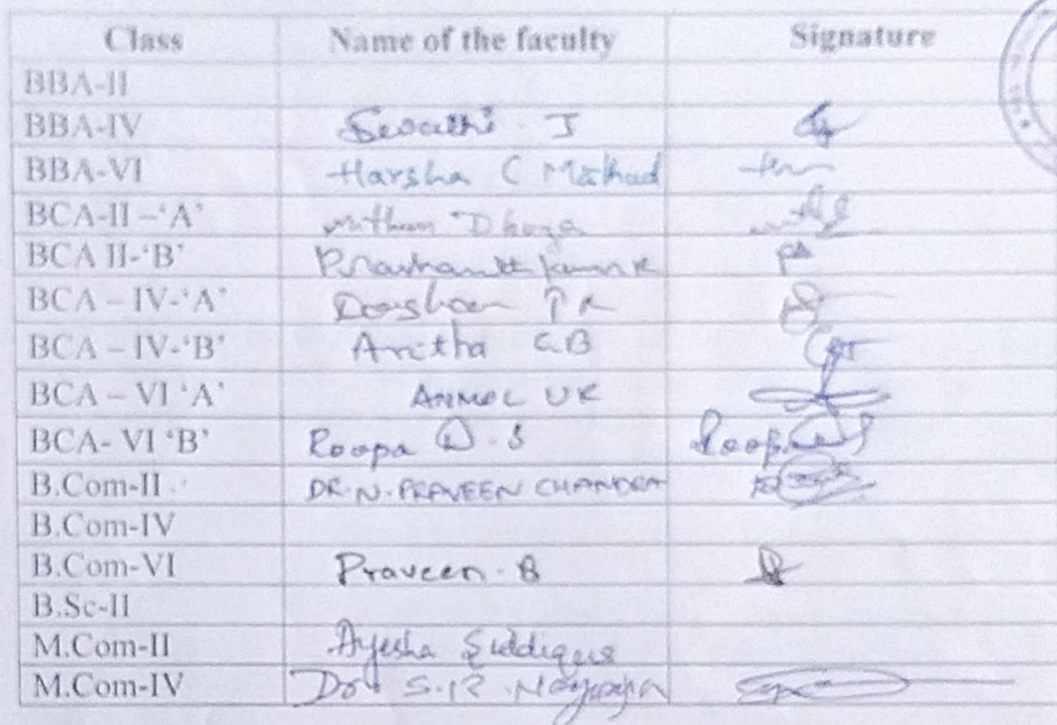 Class Name of the faculty Signature
BBA-II
BBA-IV Swathi J
BBA-VI Harsha C Mathad
BCA-II –‘A’ Mithun D
BCA II-‘B’ Prashanth Kumar K
BCA – IV-‘A’ Darshan P R
BCA – IV-‘B’ Anitha G.B
BCA – VI ‘A’ ANMOL UK
BCA- VI ‘B’ Roopa D.S
B.Com-II DR.N.PRAVEEN CHANDRA
B.Com-IV
B.Com-VI Praveen.B
B.Sc-II
M.Com-II Ayesha Siddiqua
M.Com-IV Dr. S.R.